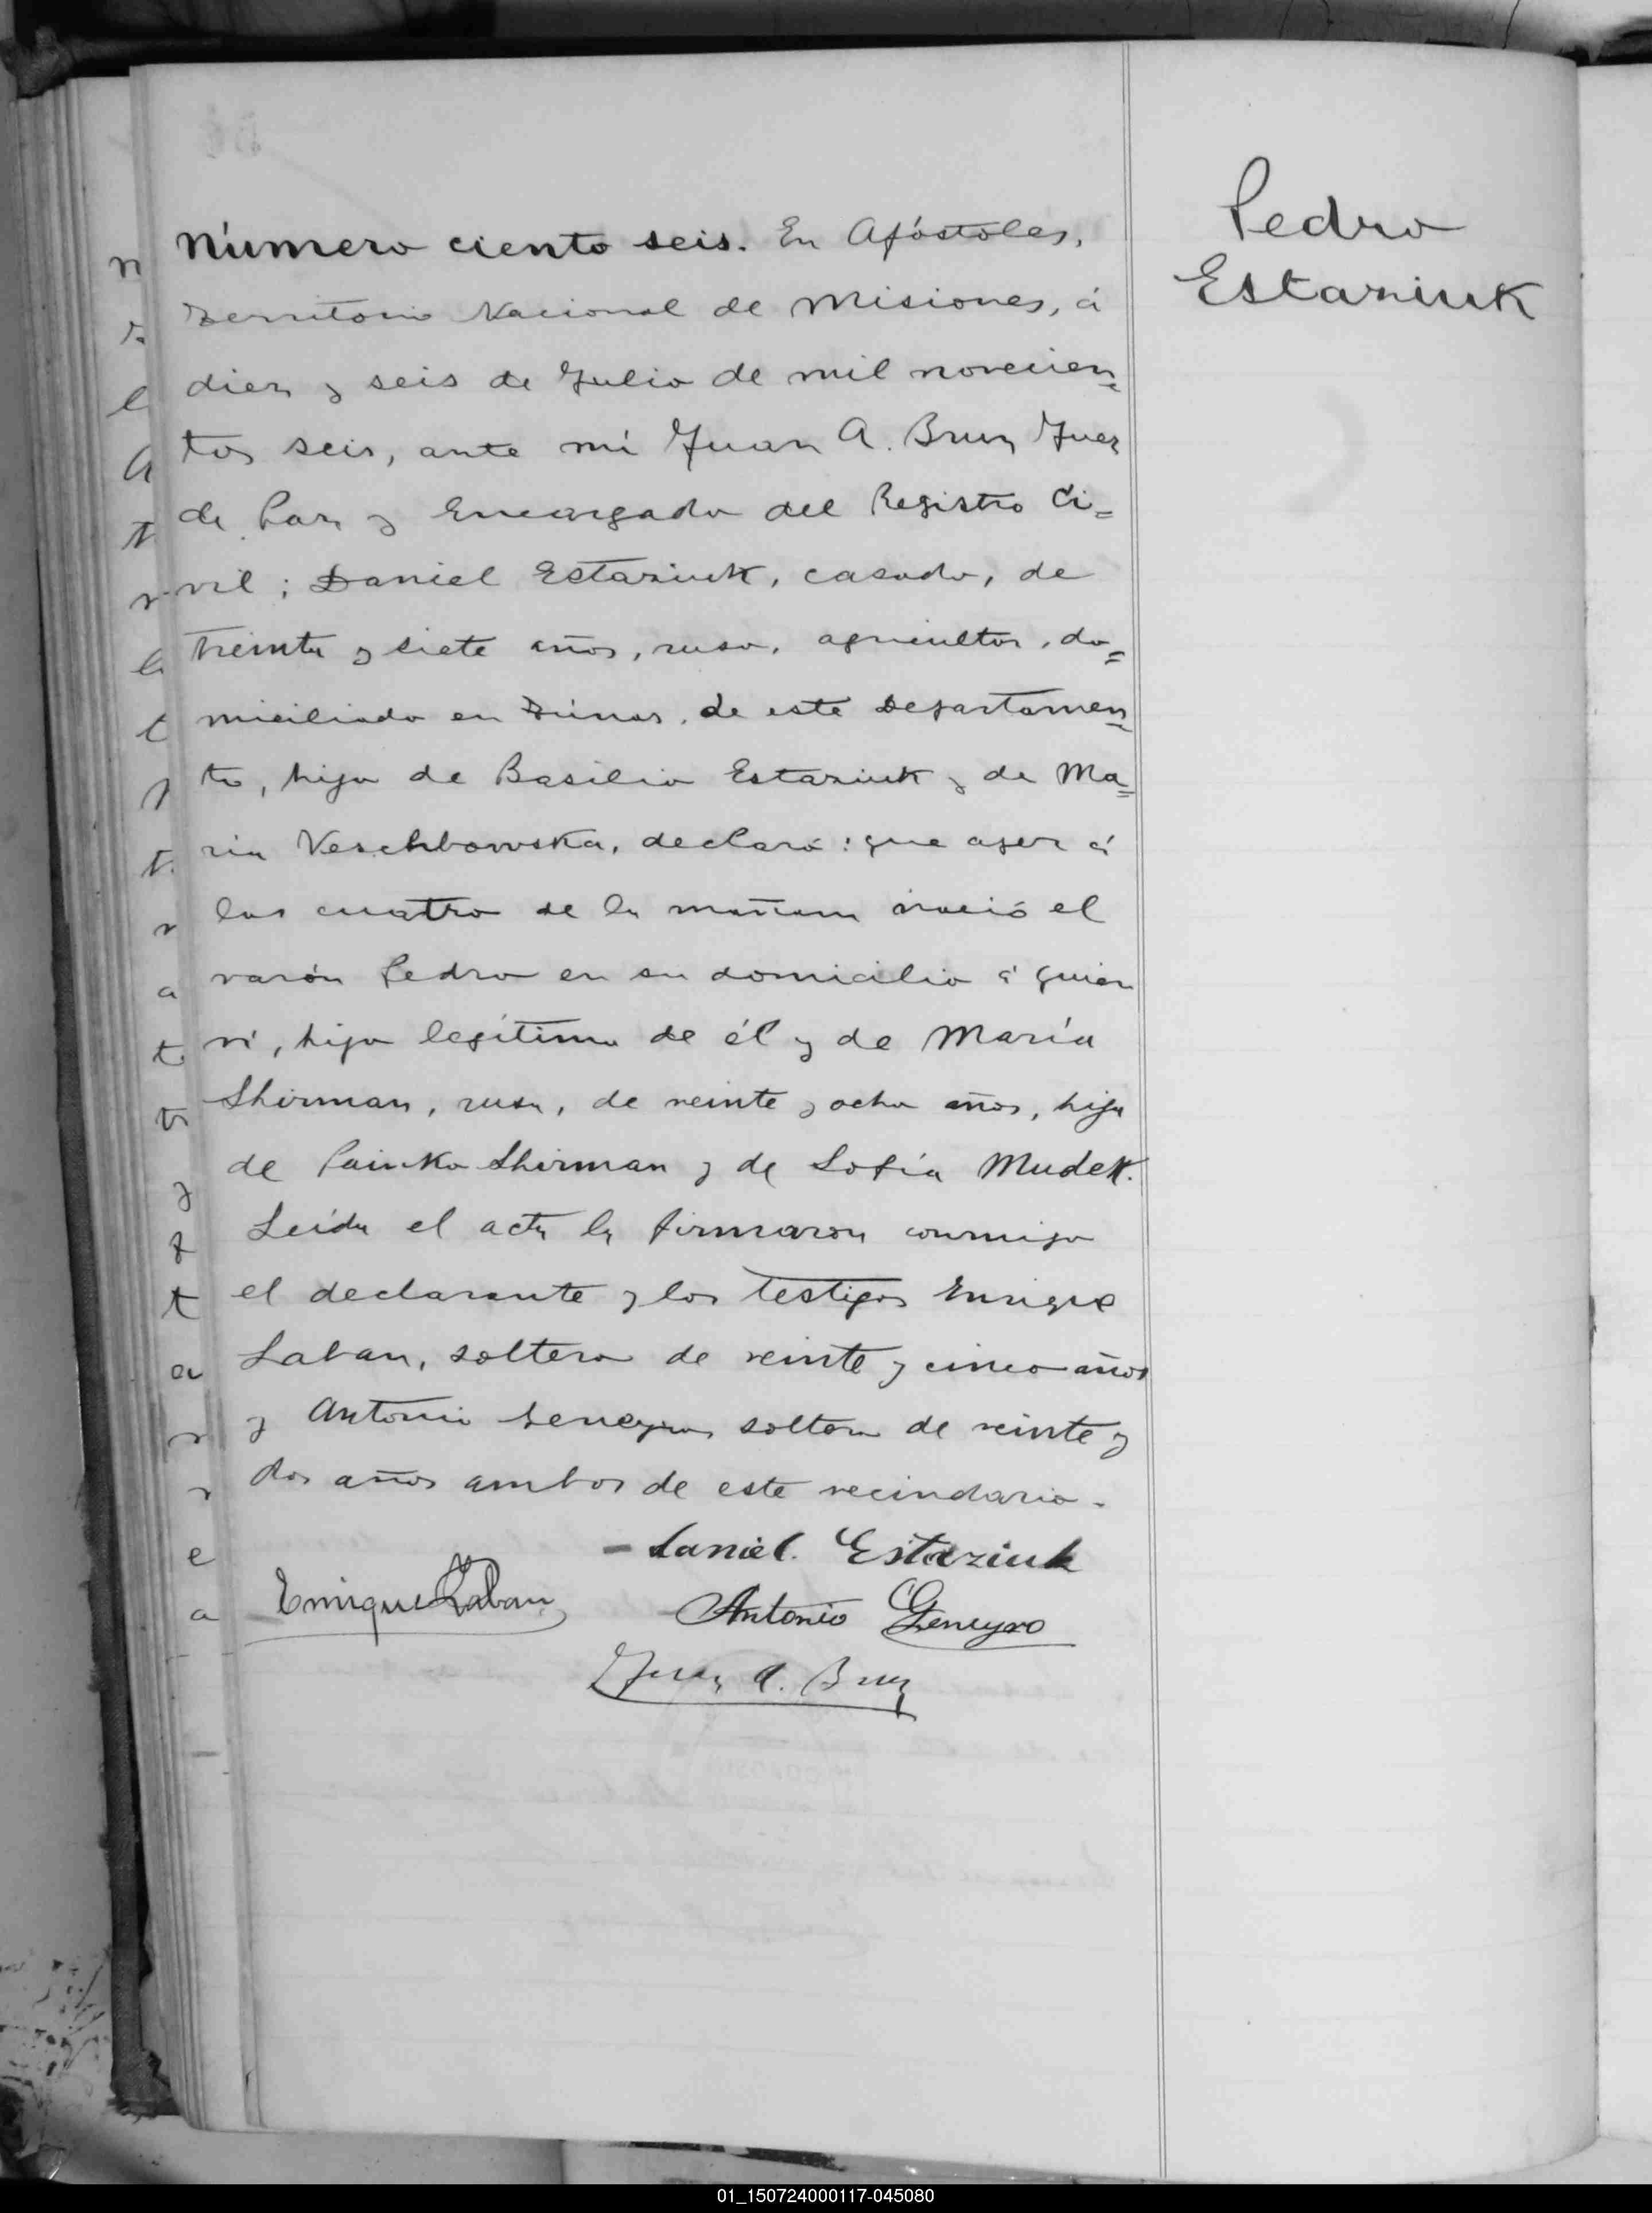 Pedro
Estaziuk
Número ciento seis. En Apóstoles,
Territorio Nacional de Misiones, á
diez y seis de Julio de mil novecien=
tos seis, ante mí Juan A. Brun Juez
de Paz y Encargado del Registro Ci=
vil; Daniel Estaziuk, casado, de
treinta y siete años, ruso, agricultor, do=
miciliado en de este Departamen=
to, hijo de Basilio Estaziuk y de Ma=
ria declaró: que ayer á
las cuatro de la mañana nació el
varón Pedro en su domicilio á quien
ví, hijo legítimo de él y de María
Shirman, rusa, de veinte y ocho años, hija
de Shirman y de Sofía Mudek.
Leída el acta la firmaron conmigo
el declarante y los testigos Enrique
Laban, soltero de veinte y cinco años
y Antonio Geneyro, soltero de veinte y
dos años ambos de este vecindario.
Daniel. Estaziuk
Enrique Laban
Antonio Geneyro
Juan A. Brun
01_150724000117-045080